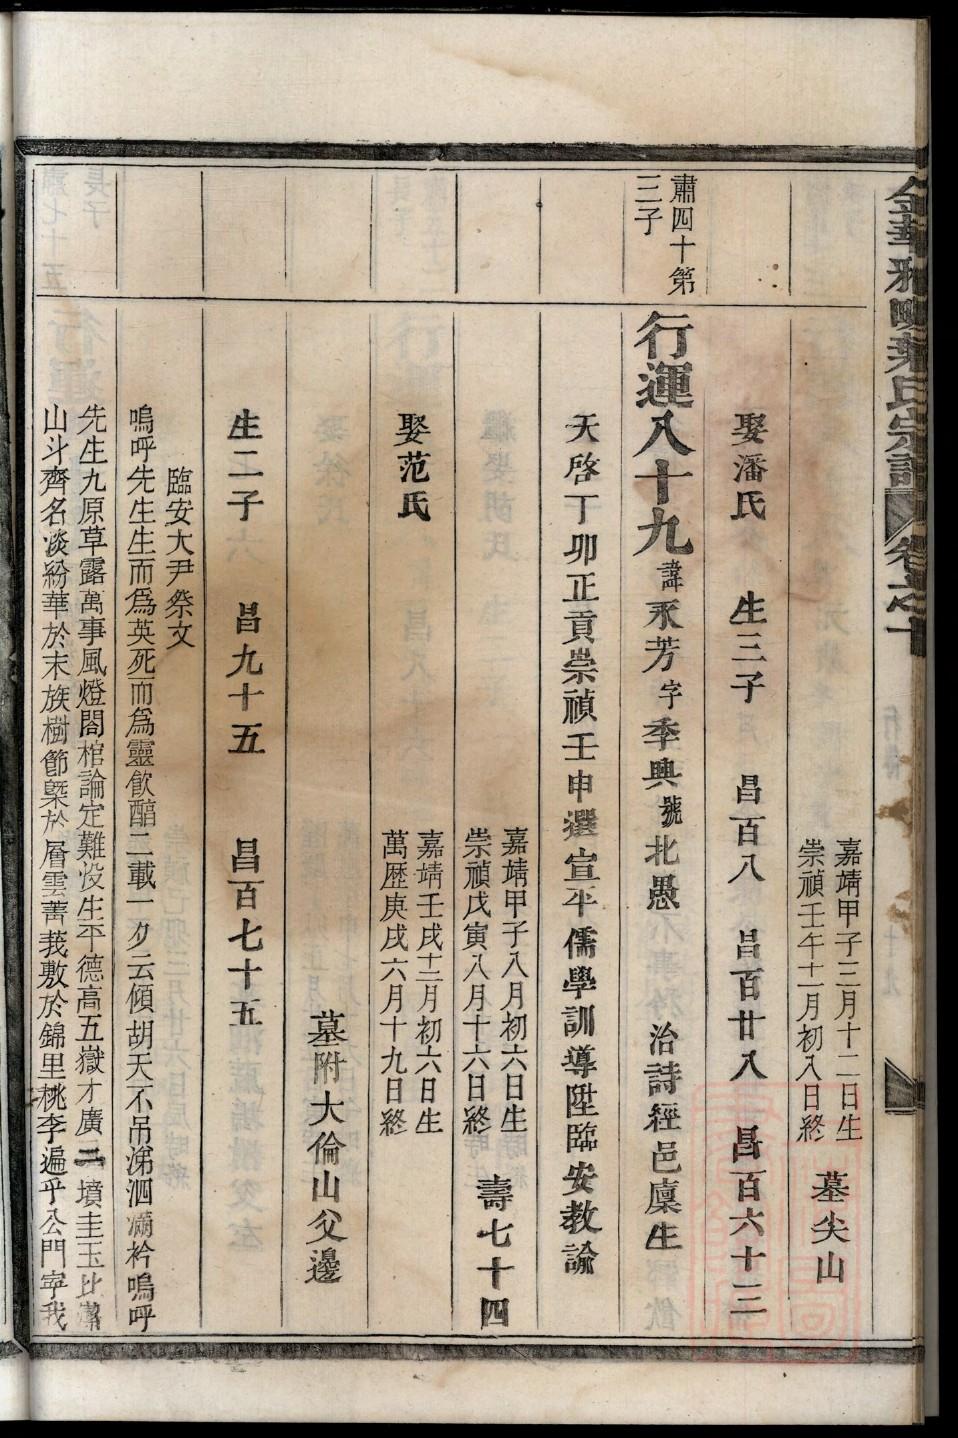 嘉靖甲子三月十二日生
崇禎壬午十一月初八日終
墓尖山
娶潘氏 生三子 昌百八 昌百廿八 昌百六十三
肅四十第
三子
行運八十九 諱永芳 字季興 號北愚 治詩經邑廩生
天啓丁卯正貢崇禎壬申選宣平儒學訓導陞臨安教諭
嘉靖甲子八月初六日生
崇禎戊寅八月十六日終
壽七十四
娶范氏
嘉靖壬戌十二月初六日生
萬歷庚戌六月十九日終
墓附大倫山父邊
生二子 昌九十五 昌百七十五
臨安大尹祭文
嗚呼先生生而為英死而為靈飲醕二載一夕云傾胡天不吊涕泗滿衿嗚呼
先生九原草露萬事風燈閤棺論定難沒生平德高五嶽才廣三墳圭玉比潔
山斗齊名淡紛華於末族樹節槩於層雲菁莪敷於錦里桃李遍乎公門寧我